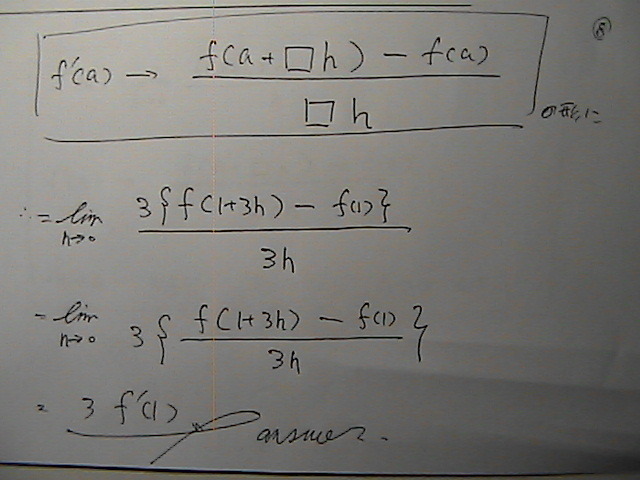 ⑧
f'(a) → f(a + □h) - f(a) / □h
の形に
∴ = lim h→0 3{f(1+3h) - f(1)} / 3h
= lim h→0 3{ f(1+3h) - f(1) / 3h }
= 3 f'(1) answer.